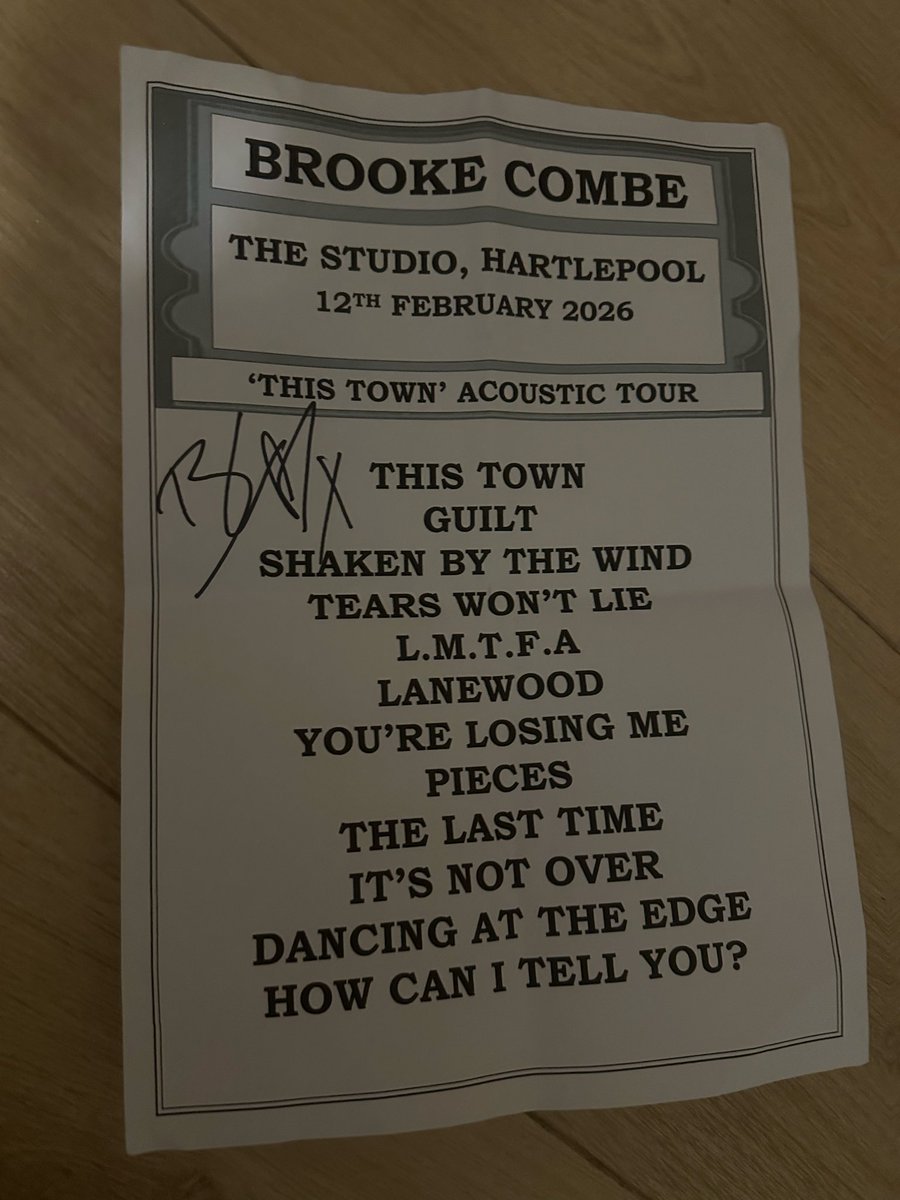 BROOKE COMBE
THE STUDIO, HARTLEPOOL
12TH FEBRUARY 2026
‘THIS TOWN’ ACOUSTIC TOUR
THIS TOWN
GUILT
SHAKEN BY THE WIND
TEARS WON’T LIE
L.M.T.F.A
LANEWOOD
YOU’RE LOSING ME
PIECES
THE LAST TIME
IT’S NOT OVER
DANCING AT THE EDGE
HOW CAN I TELL YOU?